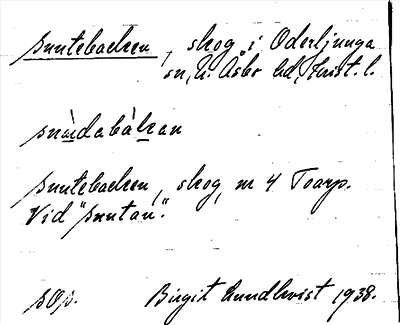 Snutebacken, skog i Oderljunga
sn, N. Åsbo hd, Krist. l.
snùdabákan
Snutebacken, skog, nr 4 Toarp.
Vid "Snutan".
sOp. Birgit Lundkvist 1938.